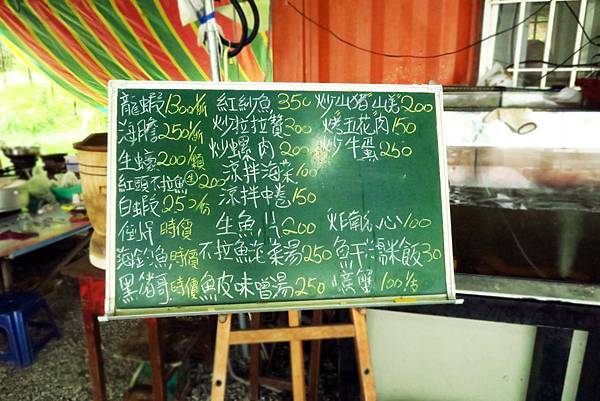 龍蝦1300/斤 紅紗魚350 炒山豬山羌200
海膽250/斤 炒拉拉贊200 烤五花肉150
生蠔200/顆 炒螺肉200 炒牛蛋250
紅頭不拉魚 200 涼拌海菜100
白蝦250/份 涼拌中卷150
時價 生魚片200 炸軟心100
海魚時價 不拉魚花菜湯250 魚干湯味飯30
黑豬哥時價 魚皮味噌湯250 螃蟹100/古